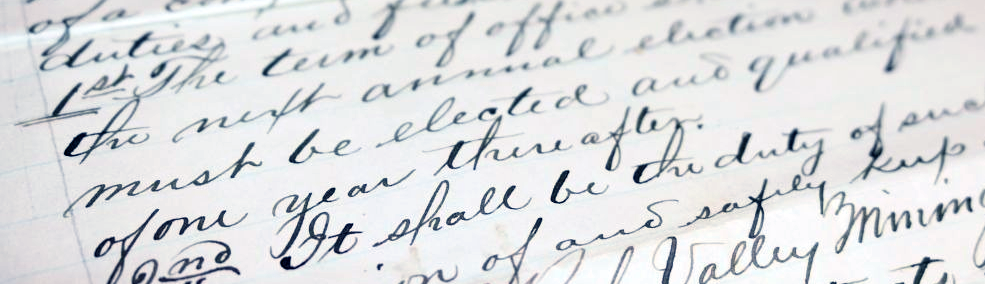 of a
duties and
1st The term of office
the next annual election
must be elected and qualified
of one year thereafter.
2nd It shall be the duty of
of and safely keep
Valley Mining